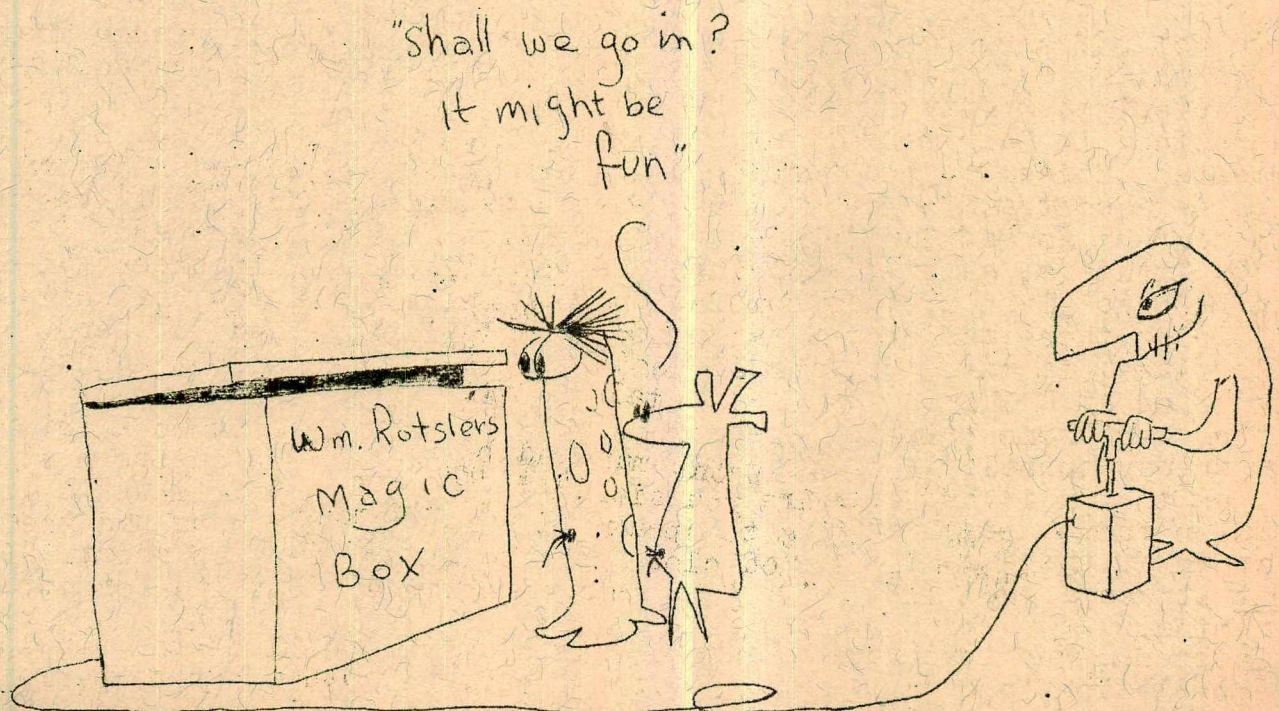 "Shall we go in?
It might be
fun"
Wm. Rotsler's
Magic
Box